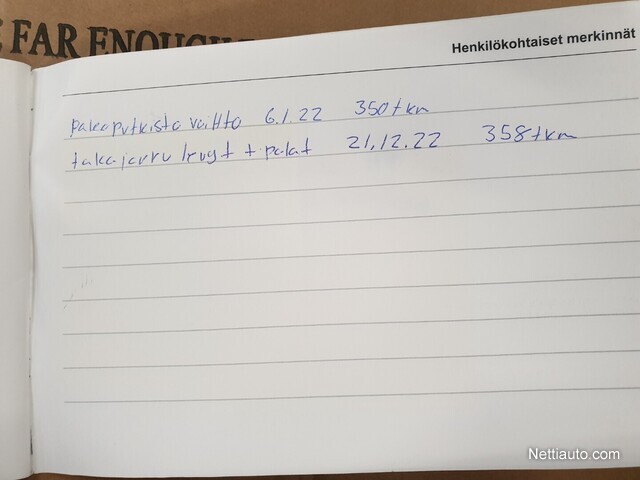 FAR ENOUGH
Henkilökohtaiset merkinnät
pakoputkisto vaihto 6.1.22 350tkm
takajarru levyt + palat 21.12.22 358tkm
Nettiauto.com